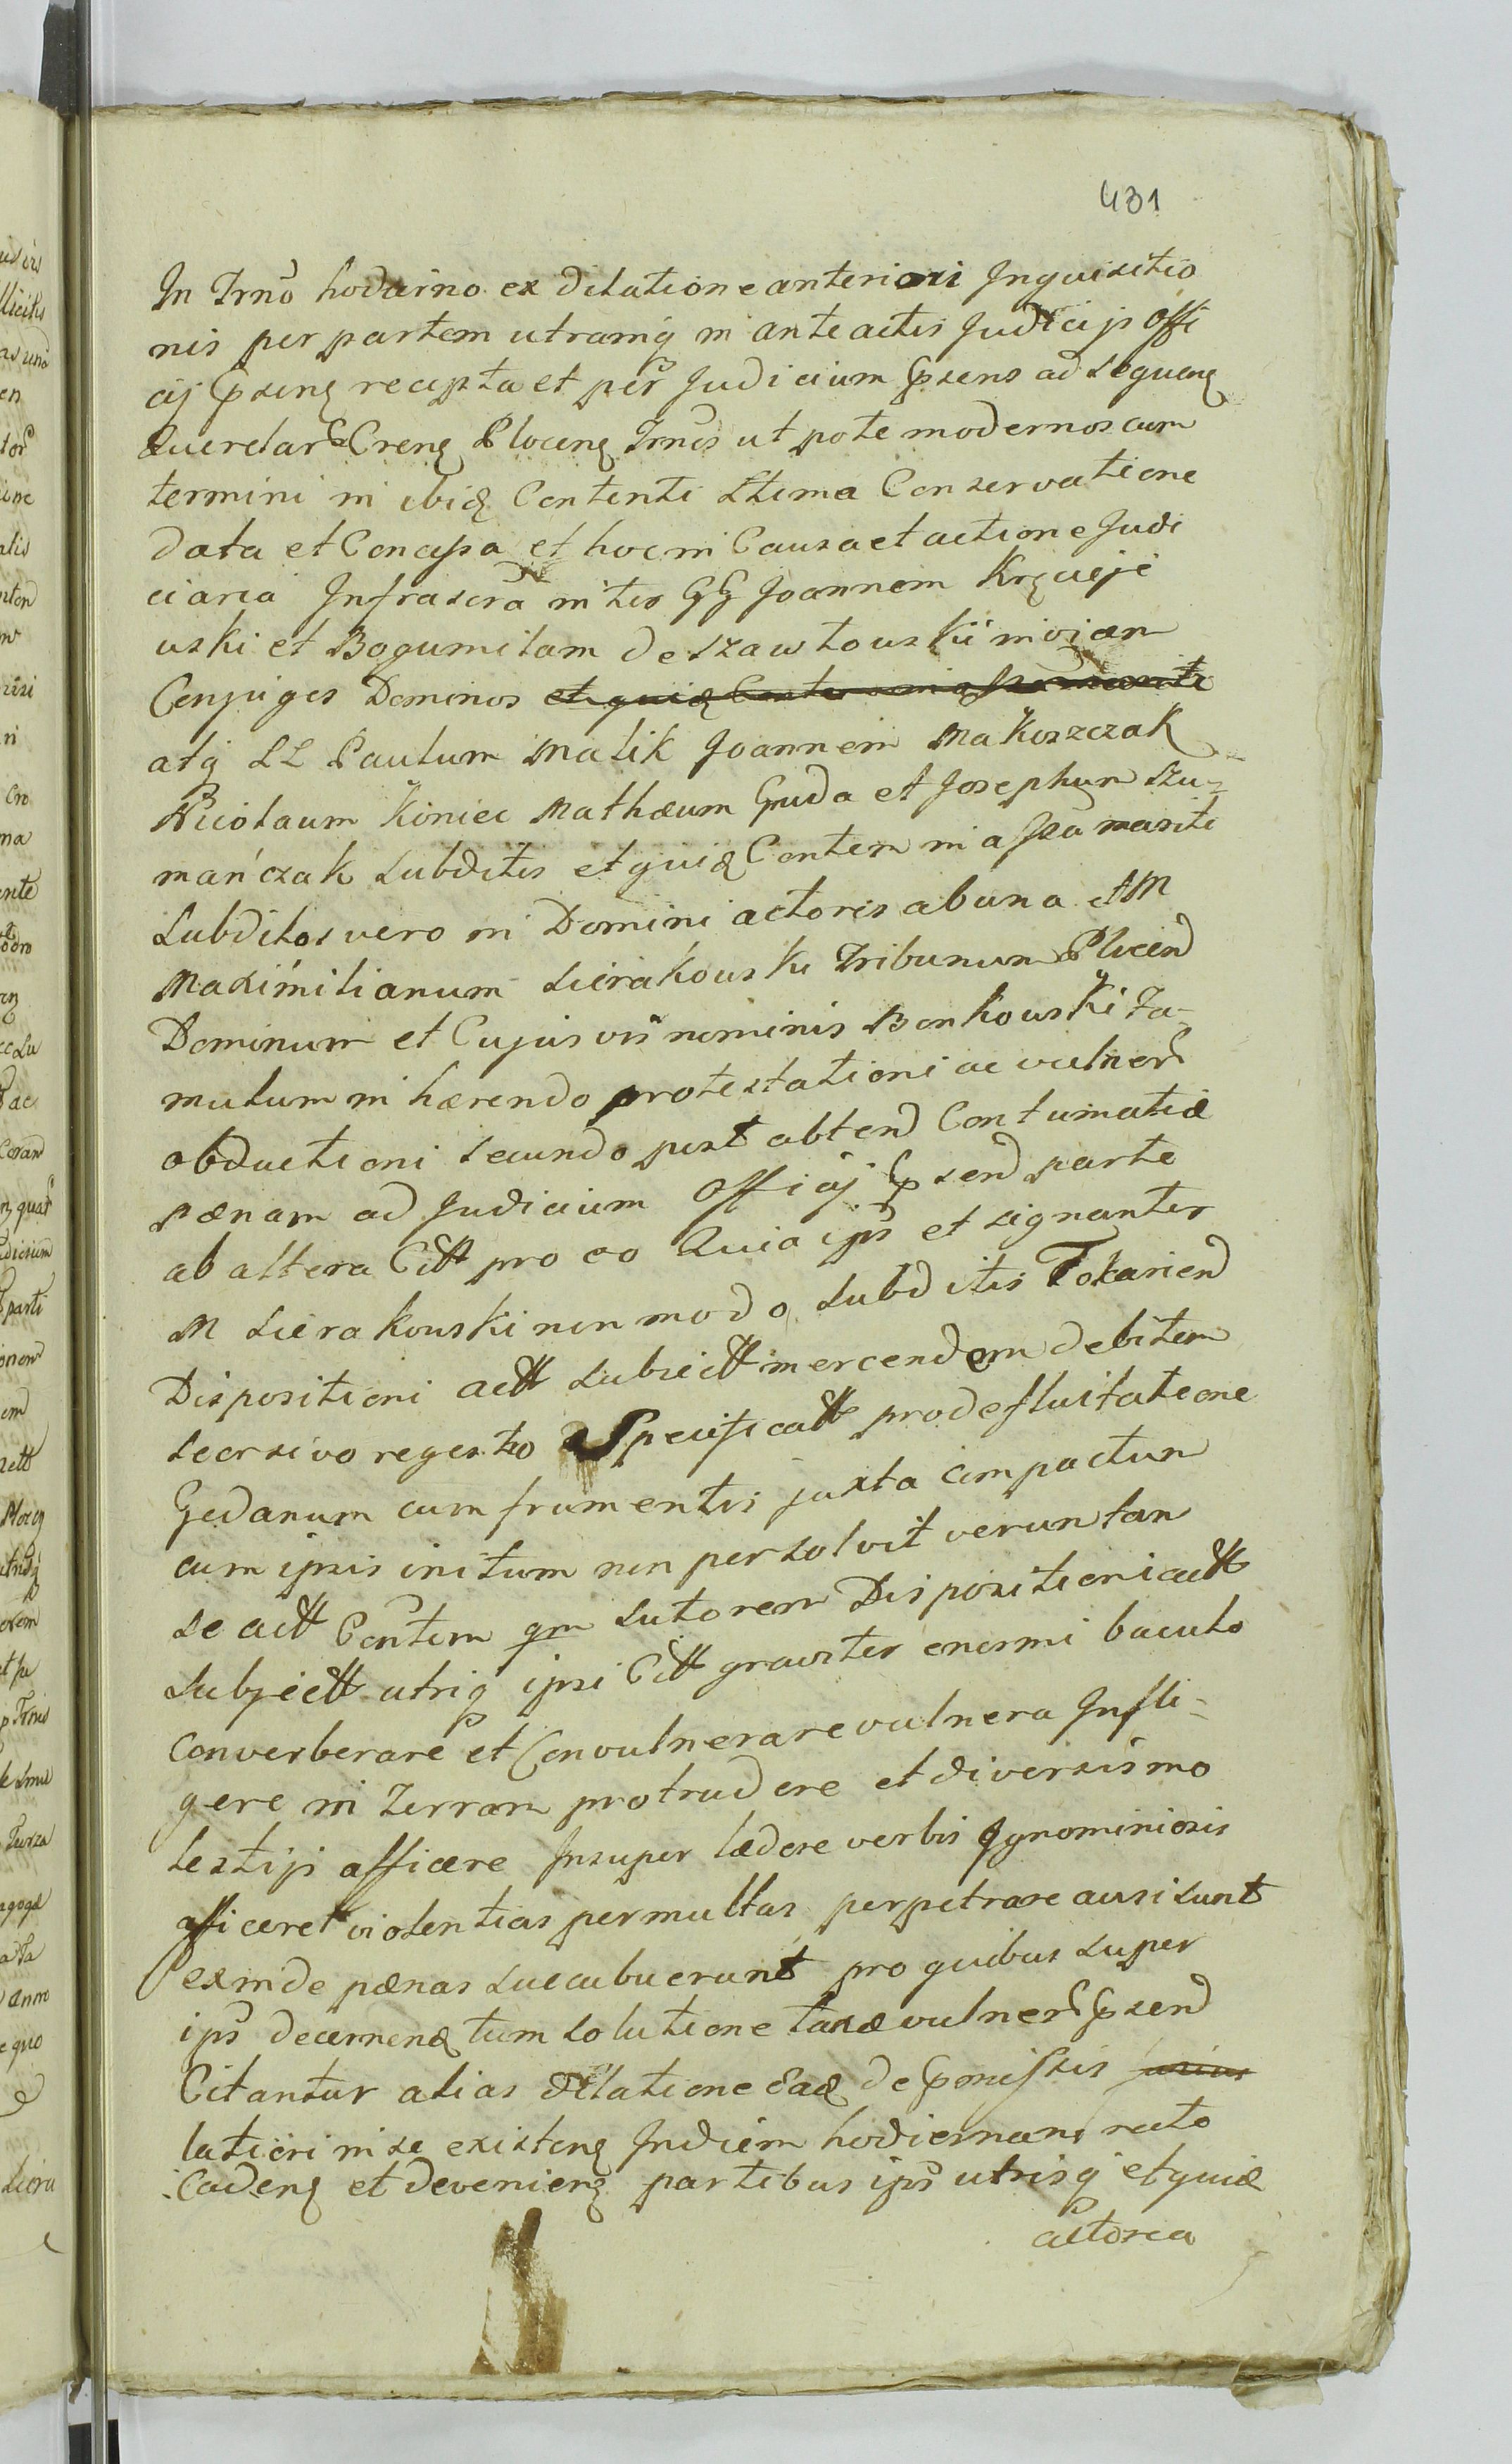 431
In Trno hodierno ex dilatione anteriori Inquisitio
nis per partem utramq in anteactis Judicijs Offi
cij Psenz recepta et per Judicium Psens ad sequenz
Querelar Crenz Plocenz Trnos ut pote modernos cum
termini in ibiq Contenti Stima Conservatione
data et Concessa et hoc in Causa et actione Judi
ciaria Infrascra inter GG Joannem Krzcieje
wski et Bogumilam de Szawłowskii in vicem
Conjuges Dominos
atq LL Paulum Malik Joannem Makoszczak
Nicolaum Koniec Mathæum Gruda et Josephum Szu-
mańczak Subditis et quidz Conten in assa mariti
Subditos vero in Domini actoris ab una et M
Maximilianum Sierakowski Tribunum Plocend
Dominum et Cujusvis nominis Bonkowski Fa-
mulum in hærendo protestationi ac vulner
obductioni secundo post obtend Contumatiæ
Pænam ad Judicium Officij Psend parte
ab altera Citt pro eo Quia ips et signanter
M Sierakowski non modo Subditis Tokariend
Dispositioni actt Subiectt mercendem debitam
seorsivo regestro Specificatt pro defluitatione
Gedanum cum frumentis juxta compactum
cum ipsis initum non persolvit verun tan
se actt Contem qm Sutorem Dispositioni actt
Subjectt utriq ipsi Citt graviter enormi baculo
Converberare et Convulnerare vulnera Infli-
gere in Terram protrudere et diversismo
lestijs afficere Insuper lædere verbis Ignominiosis
afficere violentias permultas perpetrare ausi sunt
exinde pænas succubuerunt pro quibus super
ips decernenz tum solutione taxæ vulner Psend
Citantur alias dilatione Eadz de Pmissis
latiori in se existenz Indiem hodiernam recto
Cadenz et devenienz partibus ips utrisq et quidz
actorea